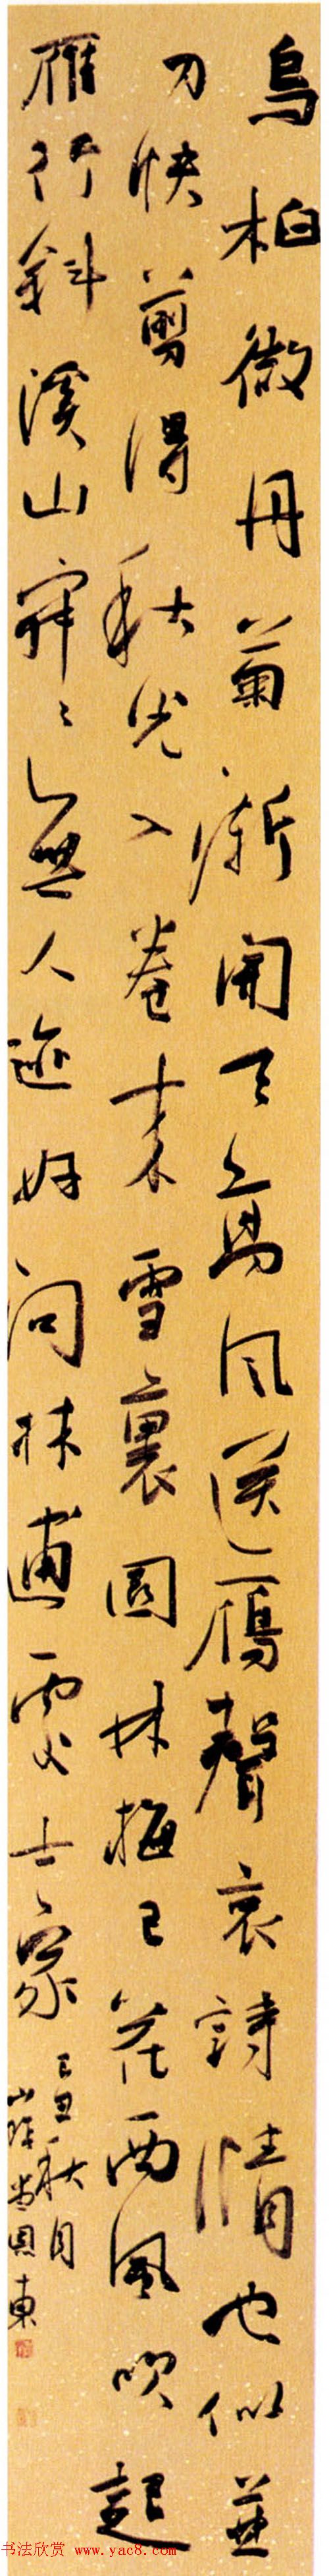 烏桕微丹菊漸開天高风送鴈聲哀詩情也似並
刀快剪得秋光入卷来雪裏園林梅已花西風吹起
雁行斜溪山寂〻無人迹好问林逋處士家
己丑秋月
山陰
书法欣赏 www.yac8.com